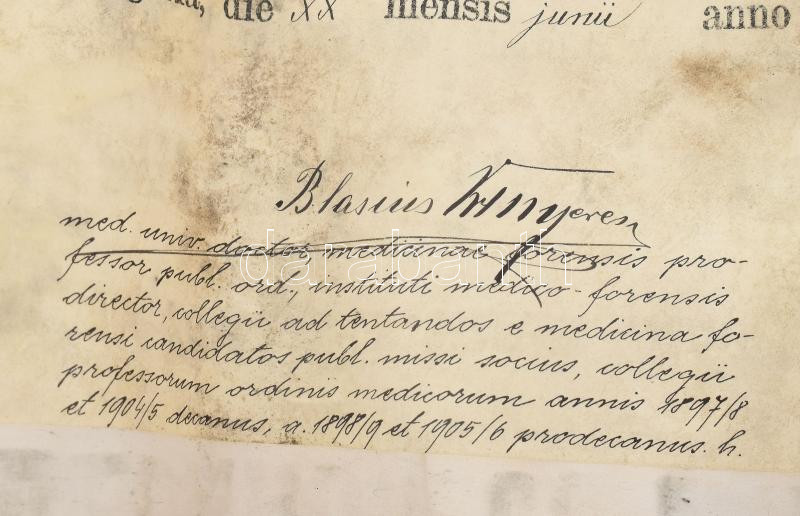 die XX mensis junii anno
Blasius Kenyeres
med. univ. doctor, medicinae forensis pro-
fessor publ. ord., instituti medico-forensis
director, collegii ad tentandos e medicina fo-
rensi candidatos publ. missi socius, collegii
professorum ordinis medicorum annis 1897/8
et 1904/5 decanus, a. 1898/9 et 1905/6 prodecanus. h.
darabanth